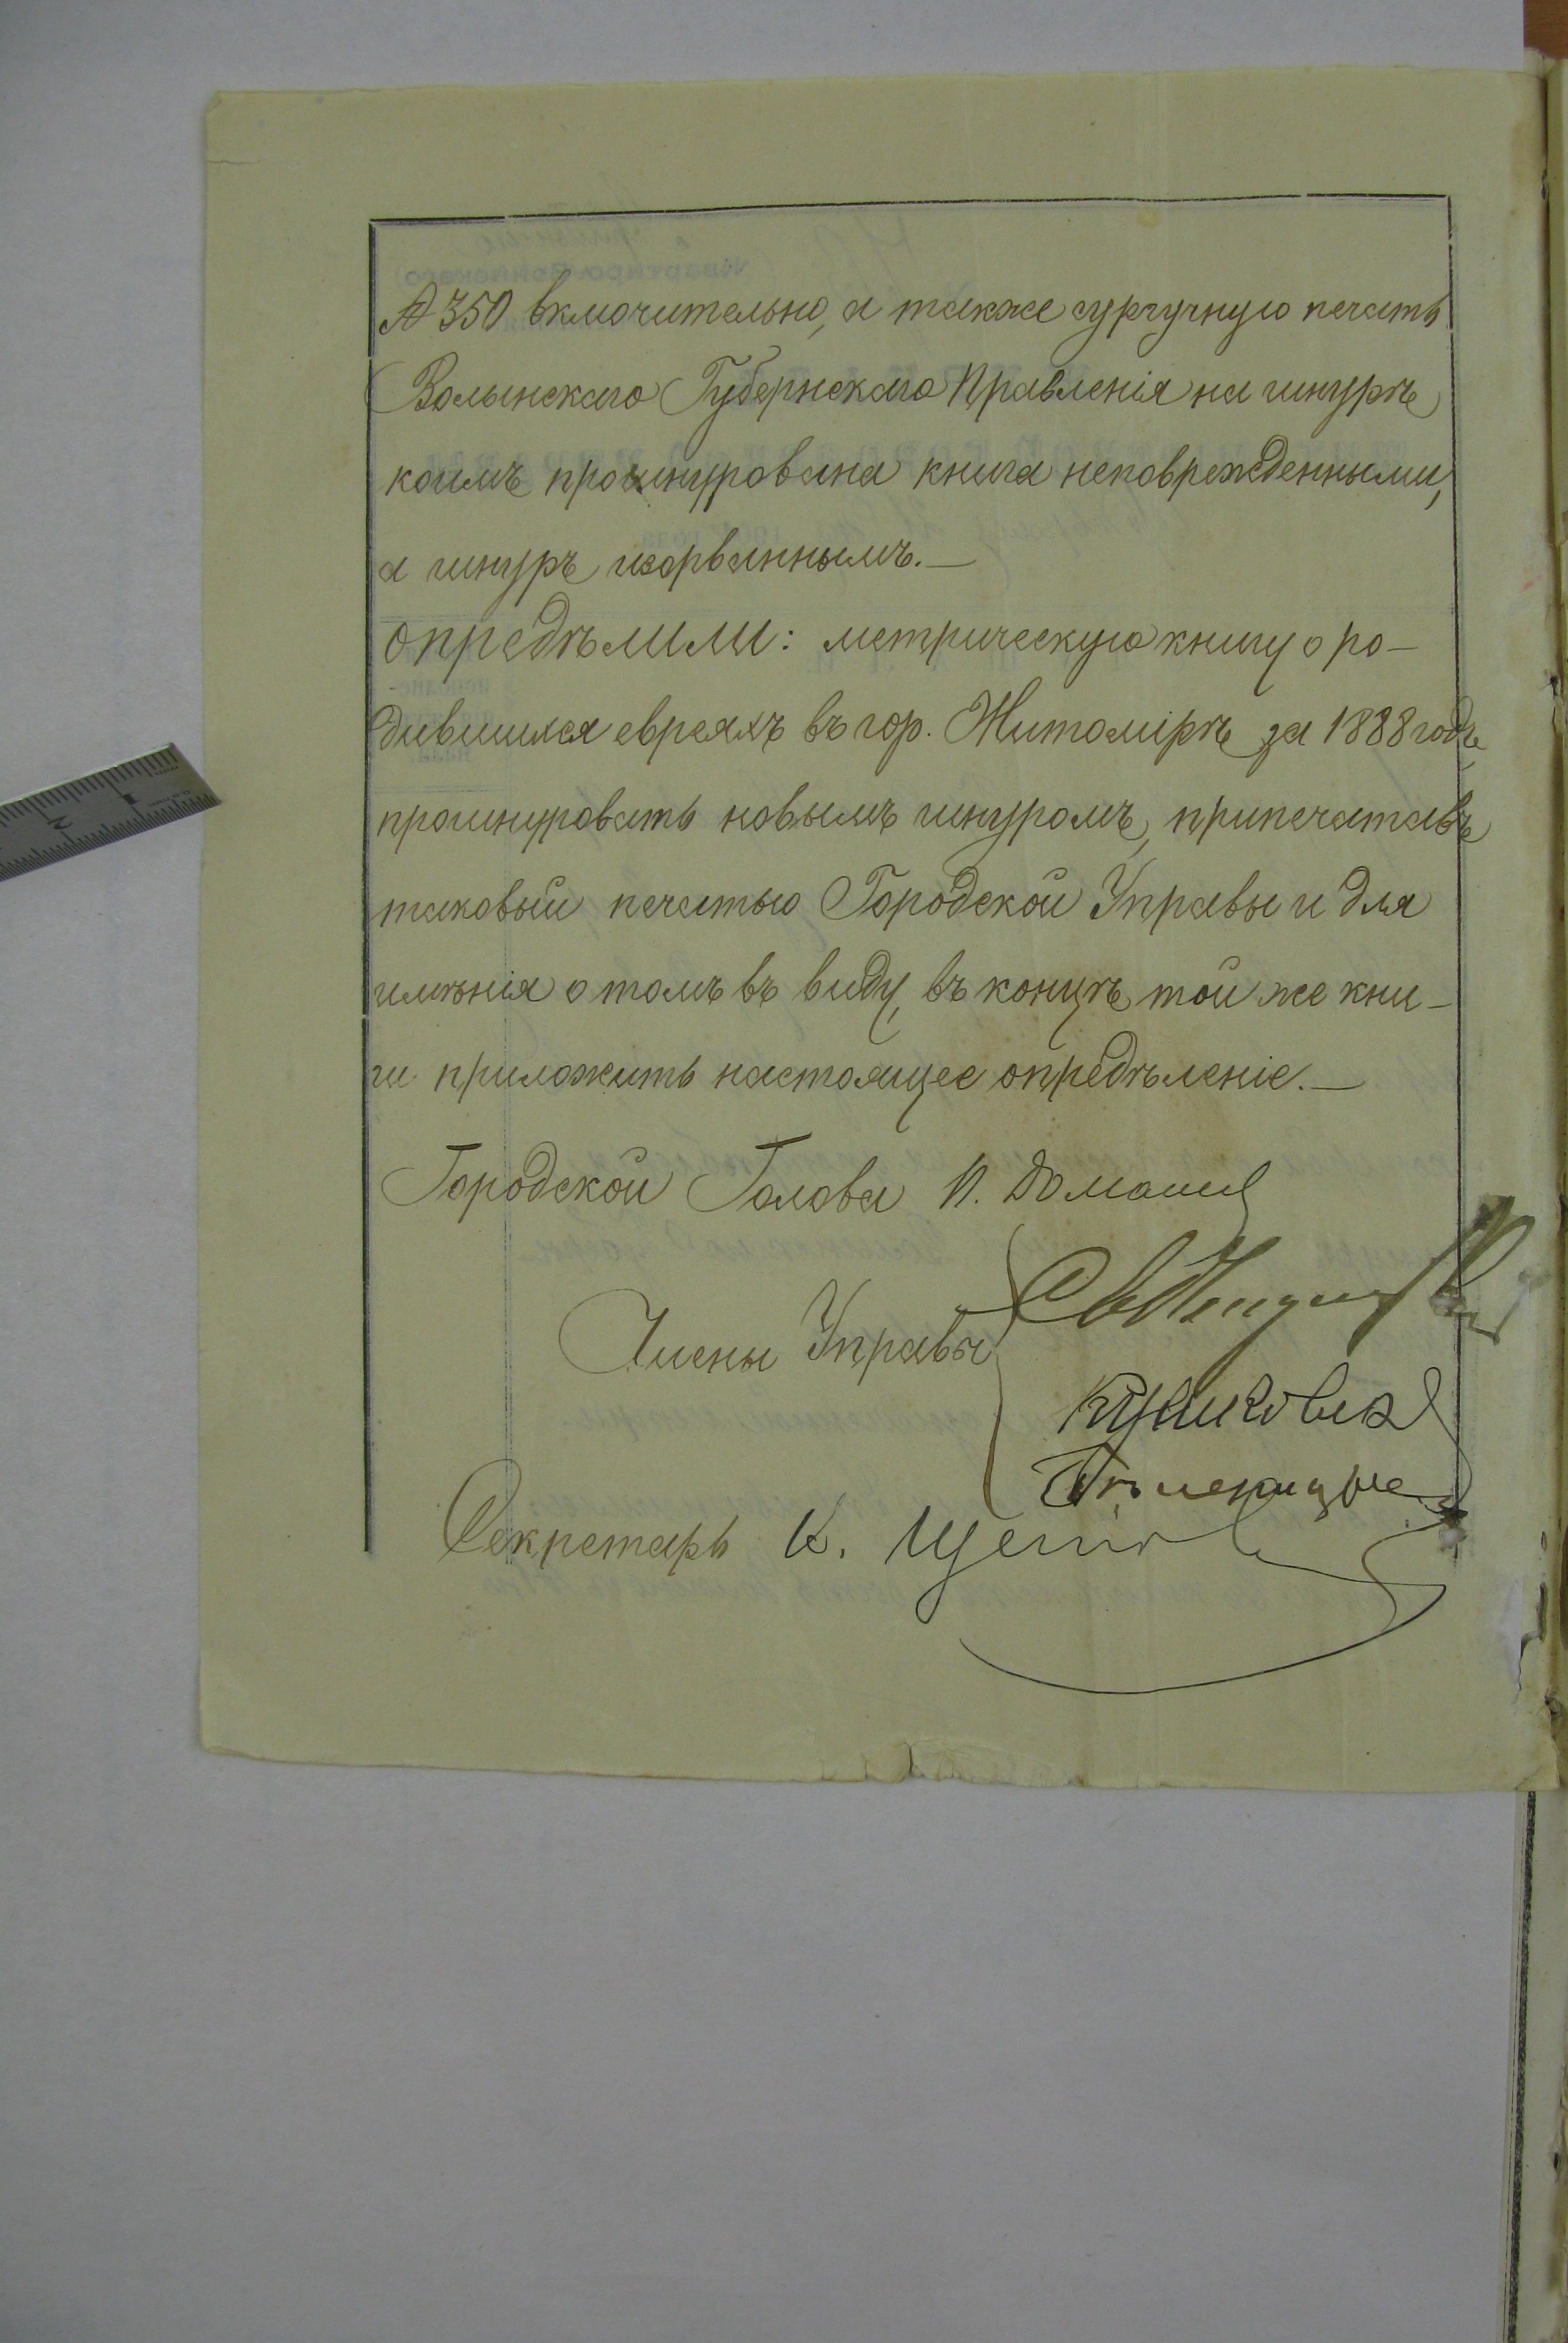 № 350 включительно, а также сургучную печать
Волынскаго Губернскаго Правленія на шнурѣ
коимъ прошнурована книга неповрежденными,
а шнуръ изорваннымъ.—
опредѣлили: метрическую книгу о ро-
дившихся евреяхъ въ гор. Житомірѣ за 1888 годъ,
прошнуровать новымъ шнуромъ, припечатавъ
таковый печатью Городской Управы и для
имѣнія о томъ въ виду, въ концѣ той же кни-
ги приложить настоящее опредѣленіе.—
Городской Голова И.
Члены Управы
Секретарь К.